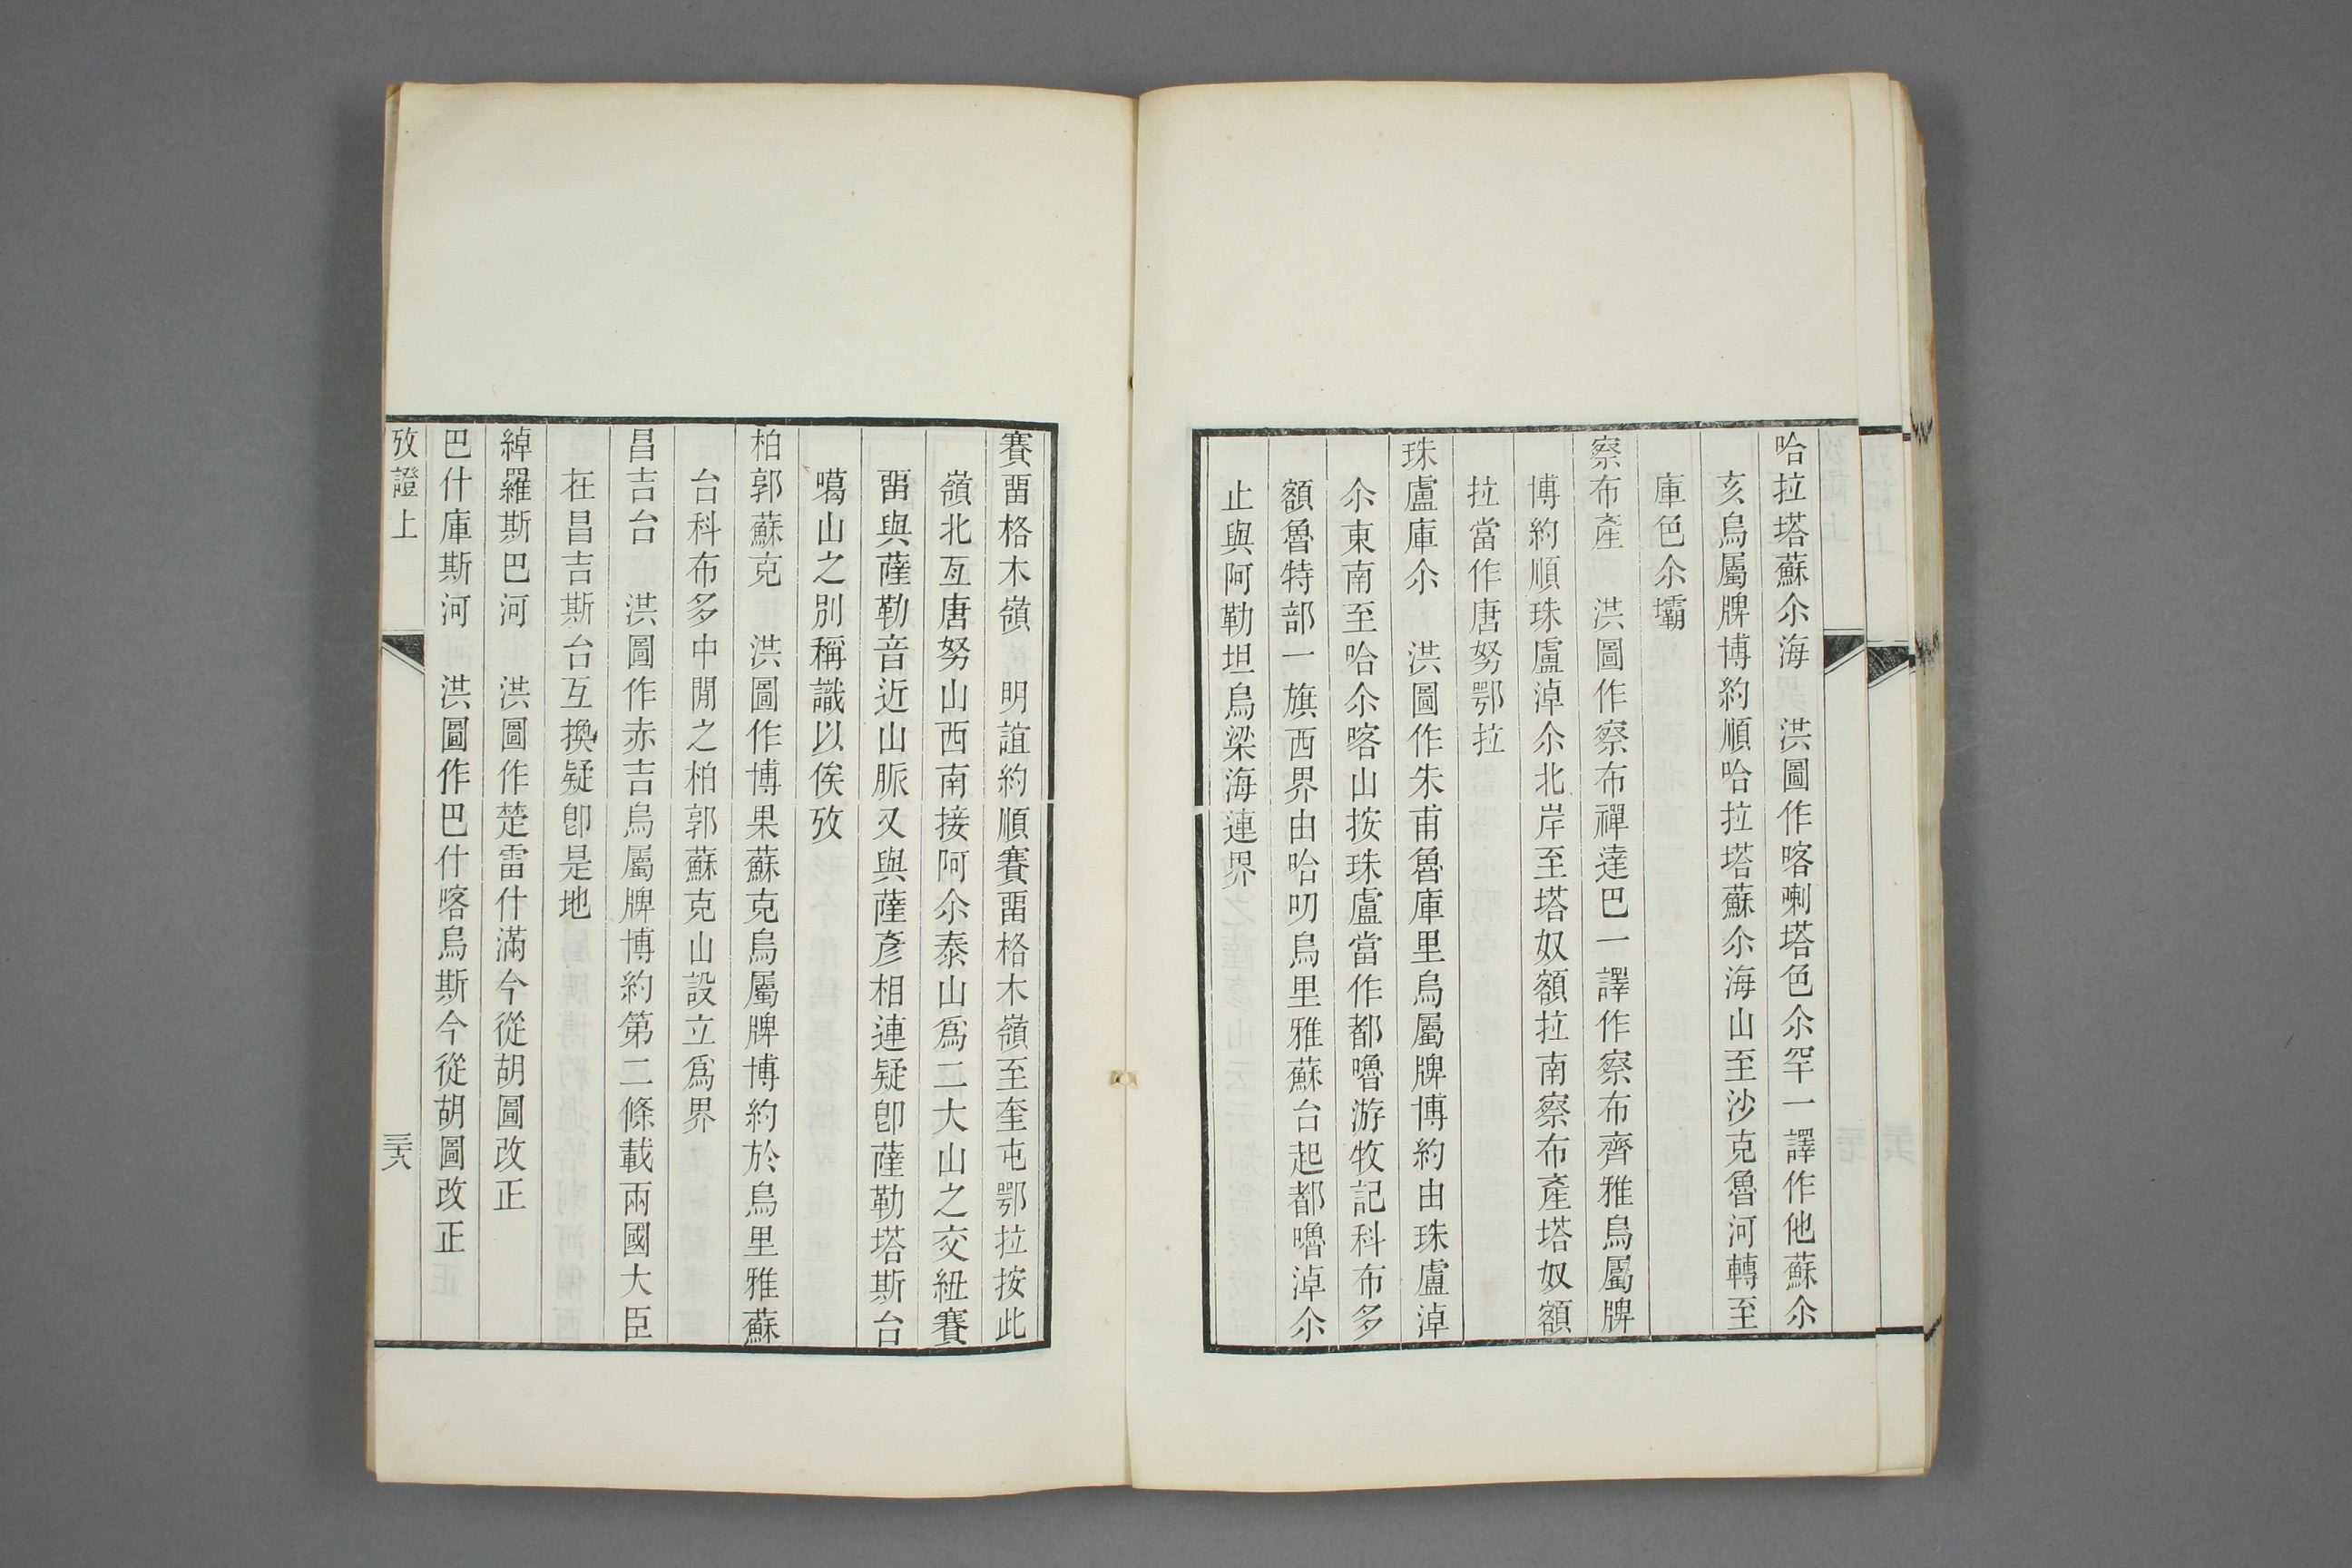 哈拉塔蘇尒海　洪圖作喀喇塔色尒罕一譯作他蘇尒
亥烏屬牌博約順哈拉塔蘇尒海山至沙克魯河轉至
庫色尒壩
察布產　洪圖作察布禪達巴一譯作察布齊雅烏屬牌
博約順珠盧淖尒北岸至塔奴額拉南察布產塔奴額
拉當作唐努鄂拉
珠盧庫尒　洪圖作朱甫魯庫里烏屬牌博約由珠盧淖
尒東南至哈尒喀山按珠盧當作都嚕游牧記科布多
額魯特部一旗西界由哈叨烏里雅蘇台起都嚕淖尒
止與阿勒坦烏梁海連界
賽畱格木嶺　明誼約順賽畱格木嶺至奎屯鄂拉按此
嶺北亙唐努山西南接阿尒泰山爲二大山之交紐賽
畱與薩勒音近山脈又與薩彥相連疑卽薩勒塔斯台
噶山之別稱識以俟攷
柏郭蘇克　洪圖作博果蘇克烏屬牌博約於烏里雅蘇
台科布多中閒之柏郭蘇克山設立爲界
昌吉台　洪圖作赤吉烏屬牌博約第二條載兩國大臣
在昌吉斯台互換疑卽是地
綽羅斯巴河　洪圖作楚雷什滿今從胡圖改正
巴什庫斯河　洪圖作巴什喀烏斯今從胡圖改正
攷證上
三六